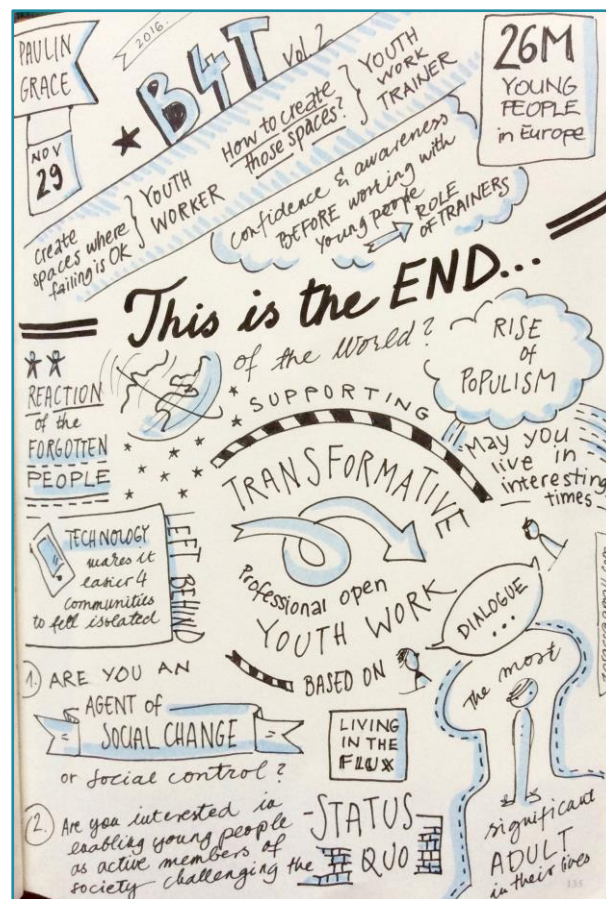 PAULIN
GRACE
2016.
B4T
Vol 2
NOV
29
26M
YOUNG
PEOPLE
in Europe
create
spaces where
failing is OK
YOUTH
WORKER
How to create
those spaces?
YOUTH
WORK
TRAINER
confidence & awareness
BEFORE working with
young people
ROLE
OF TRAINERS
This is the END...
of the world?
RISE
of
POPULISM
MAY you
live in
interesting
times
REACTION
of the
FORGOTTEN
PEOPLE
TECHNOLOGY
makes it
easier 4
communities
to fell isolated
LEFT BEHIND
SUPPORTING
TRANSFORMATIVE
Professional open
YOUTH WORK
BASED ON
DIALOGUE
...
The most
significant
ADULT
in their lives
1. ARE YOU AN
AGENT of
SOCIAL CHANGE
or social control?
LIVING
IN THE
FLUX
2. Are you interested in
enabling young people
as active members of
society challenging the
STATUS
QUO
135